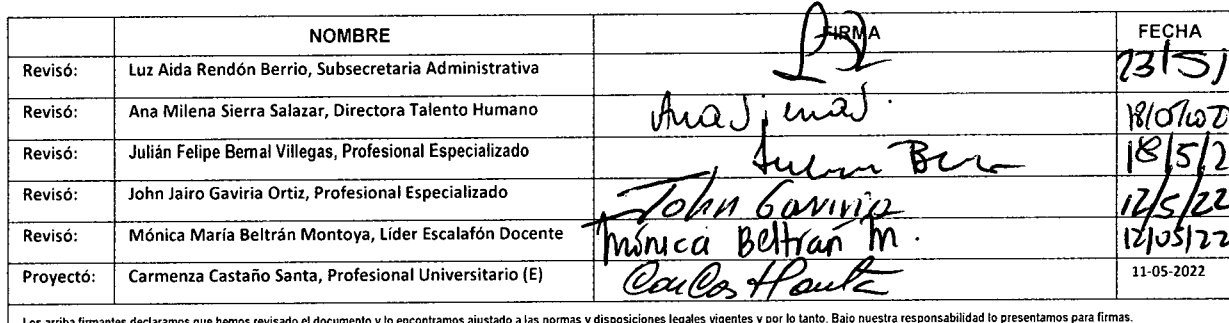 NOMBRE FIRMA FECHA
Revisó: Luz Aida Rendón Berrio, Subsecretaria Administrativa
Revisó: Ana Milena Sierra Salazar, Directora Talento Humano
Revisó: Julián Felipe Bernal Villegas, Profesional Especializado 18/5/2
Revisó: John Jairo Gaviria Ortiz, Profesional Especializado John Gaviria 12/5/22
Revisó: Mónica María Beltrán Montoya, Líder Escalafón Docente Mónica Beltrán M. 12/05/22
Proyectó: Carmenza Castaño Santa, Profesional Universitario (E) 11-05-2022
Los arriba firmantes declaramos que hemos revisado el documento y lo encontramos ajustado a las normas y disposiciones legales vigentes y por lo tanto. Bajo nuestra responsabilidad lo presentamos para firmas.